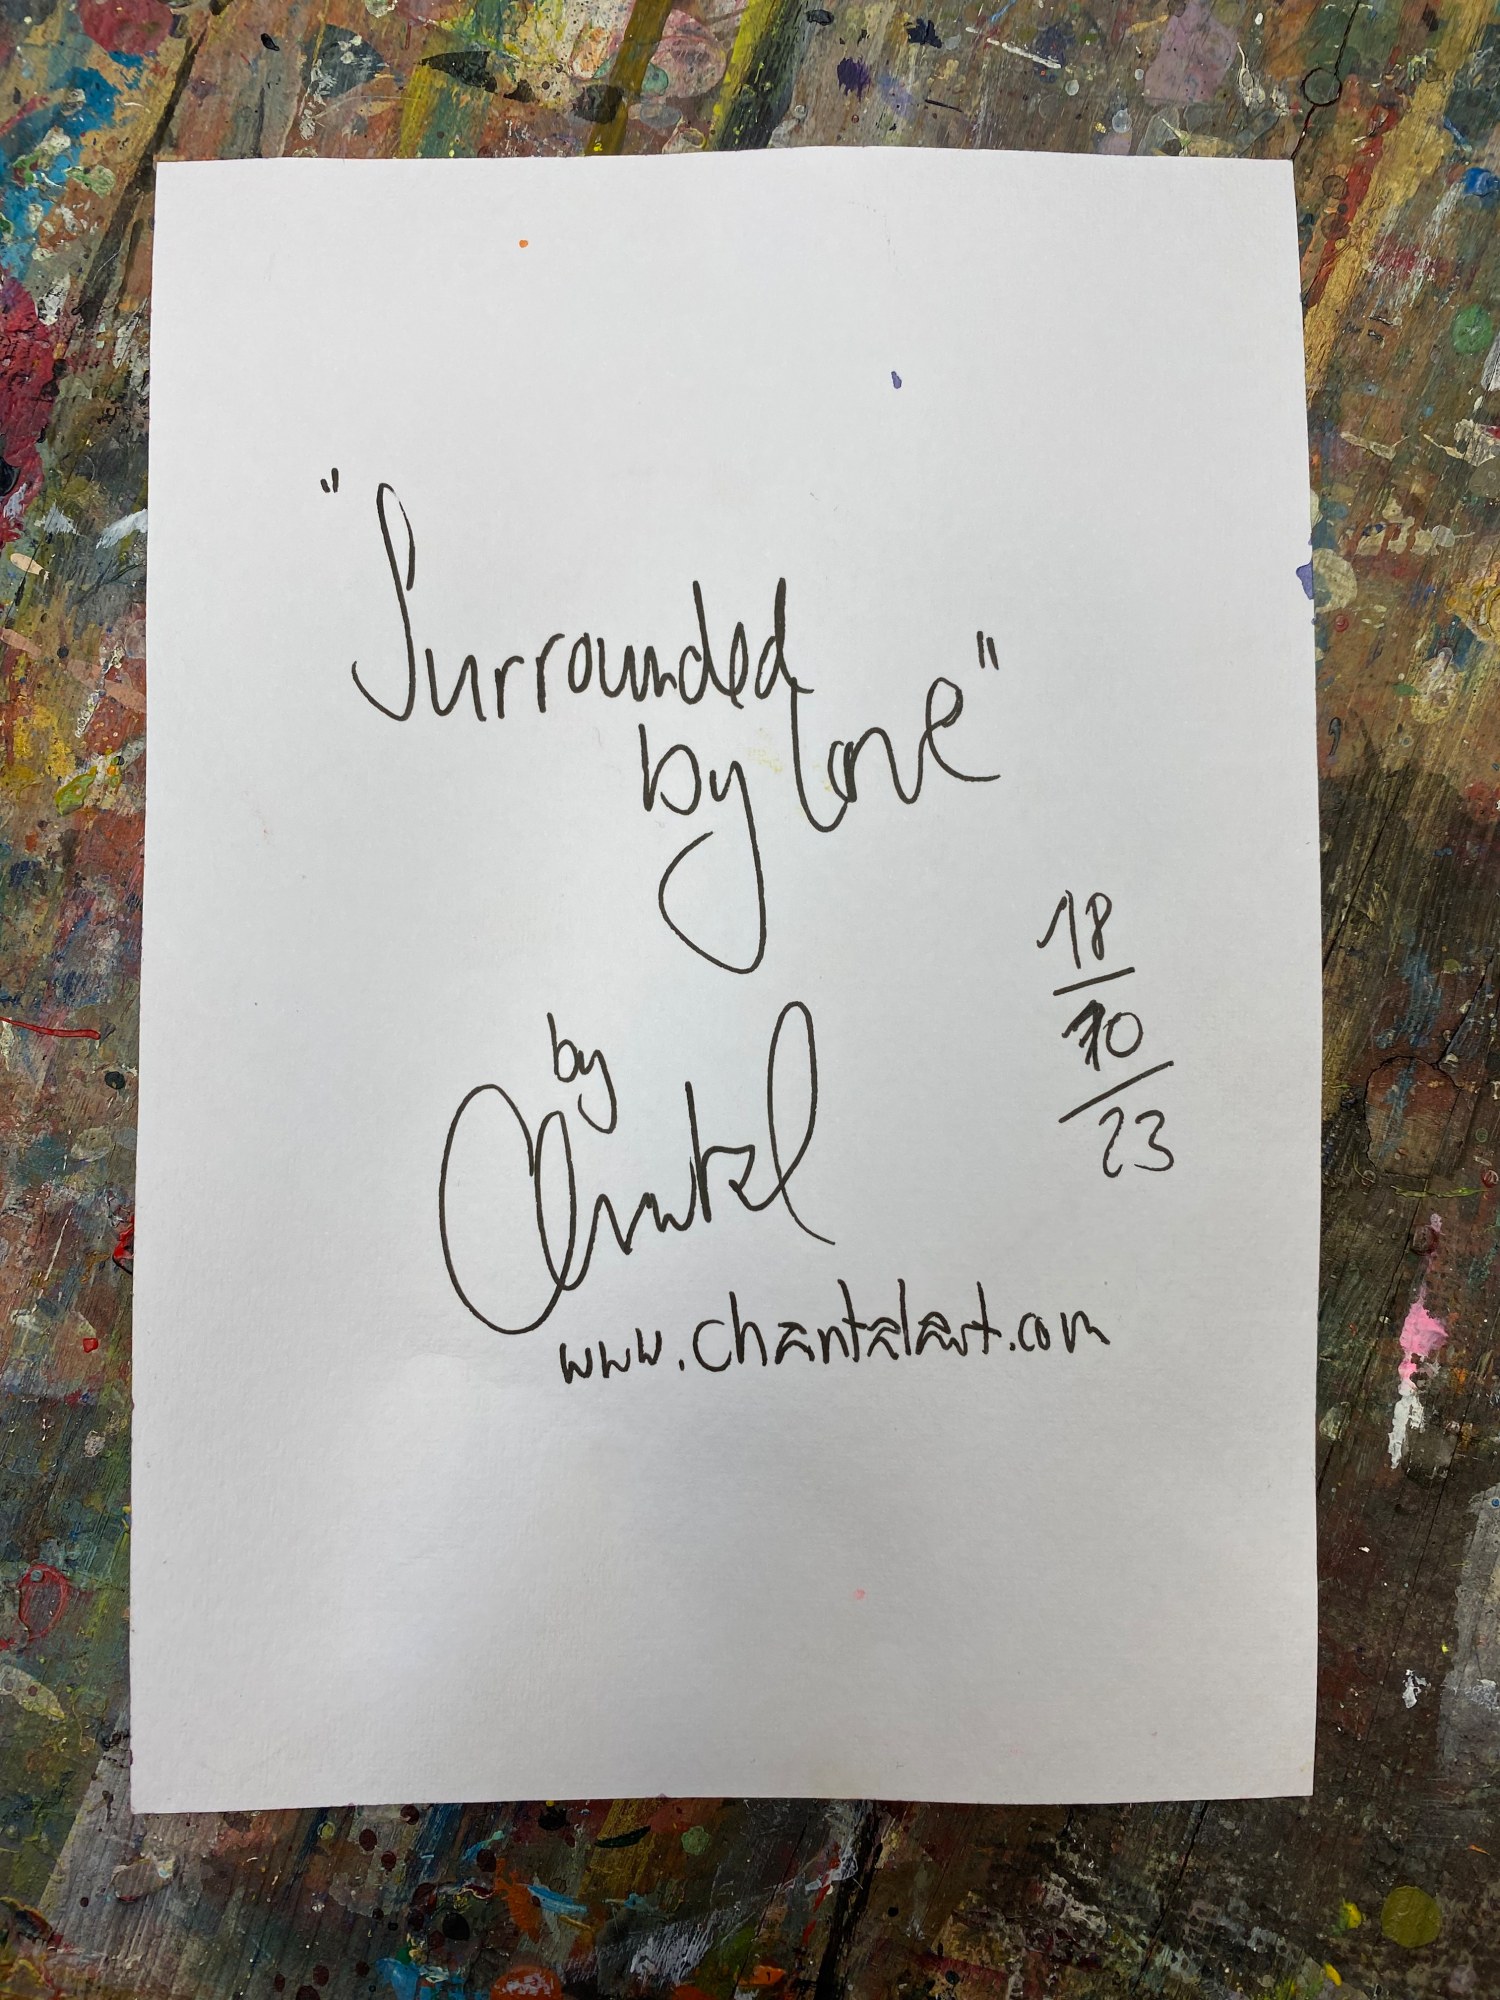 "Surrounded
by love"
18
10
23
by
Chantal
www.chantalart.com